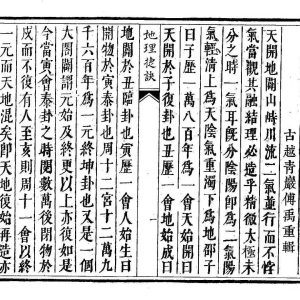 古越青巖傅禹重輯
天開地闢山峙川流二氣並行而不悖
氣當觀其融結理必造乎精微太極未
分之時一氣耳既分陰陽卽爲二氣陽
氣輕清上爲天陰氣重濁下爲地邵子
曰子歷一萬八百年爲一會天始開曰
天開於子復卦也一會地始成曰
地理捷訣
地闢於丑臨卦也寅歷一會人始生曰
開物於寅泰卦也周十二宮十二萬九
千六百年爲一元終坤卦也又是一個
大闔闢謂元始及終更以上亦復如是
今當寅會泰卦之時閱數萬後閉物於
戌而不復有人至亥則周十一會以終
一元而天地混矣卽天地復始再造亦